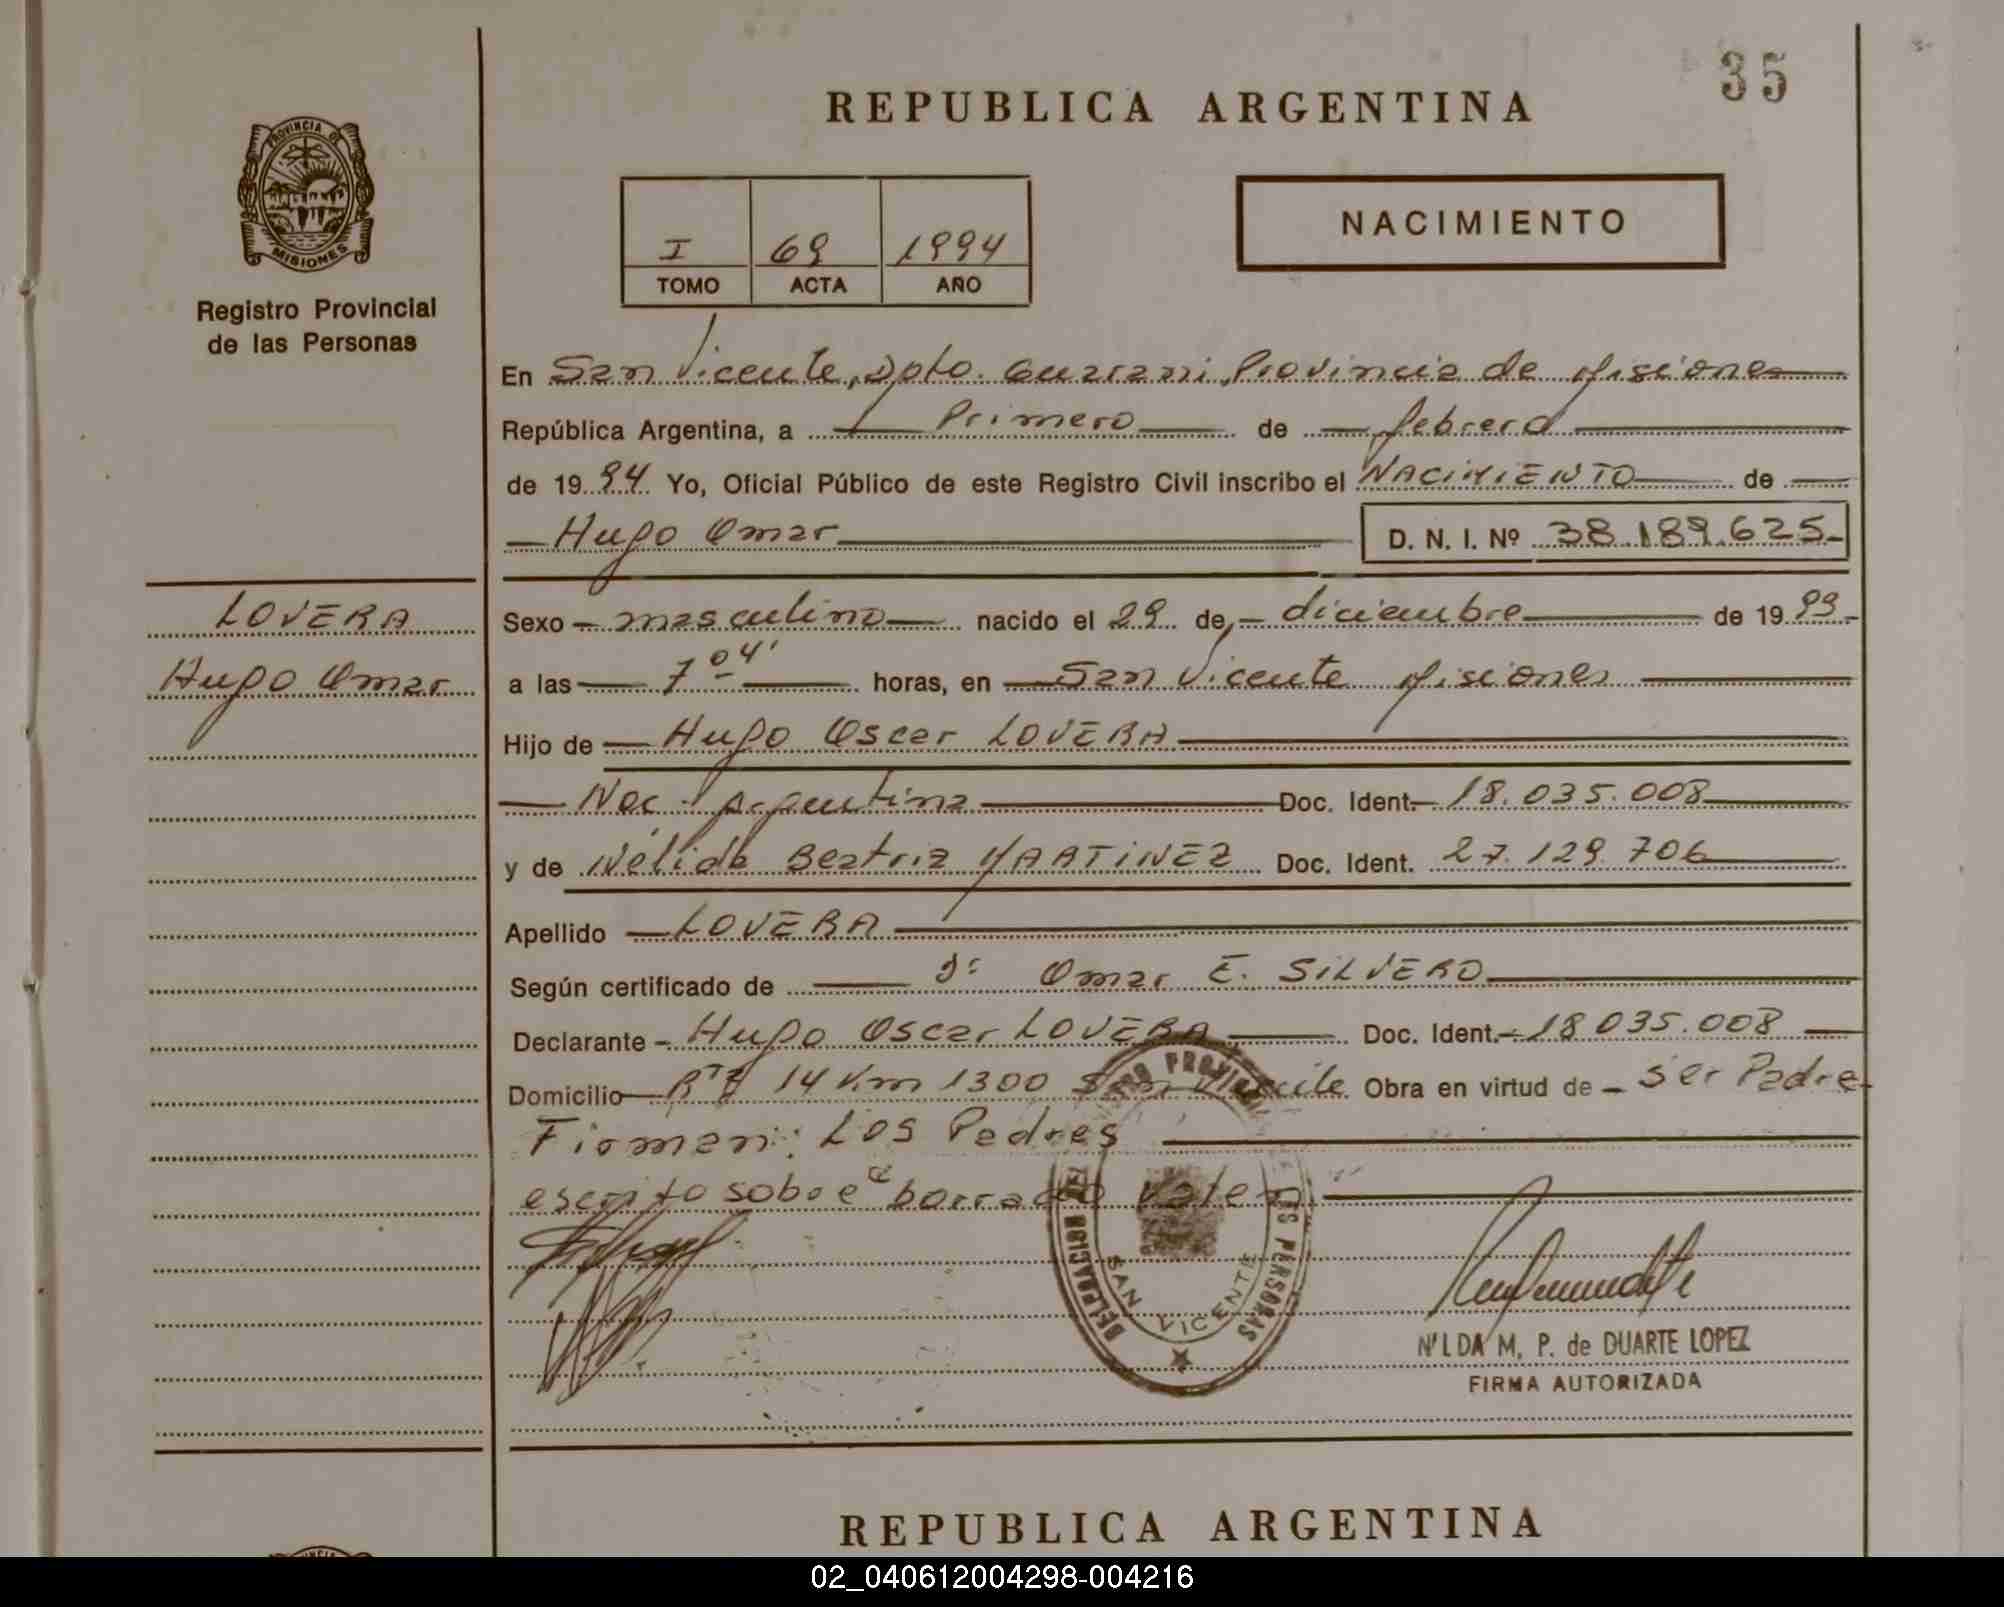 35
REPUBLICA ARGENTINA
PROVINCIA DE
MISIONES
Registro Provincial
de las Personas
I 69 1994
TOMO ACTA AÑO
NACIMIENTO
En San Vicente, Dpto. Guarani, Provincia de Misiones
República Argentina, a Primero de febrero
de 1994 Yo, Oficial Público de este Registro Civil inscribo el NACIMIENTO de
Hugo Omar D. N. I. Nº 38.189.625
LOVERA
Hugo Omar
Sexo masculino nacido el 29 de diciembre de 1993
a las 7 04' horas, en San Vicente Misiones
Hijo de Hugo Oscar LOVERA
Nac. Argentina Doc. Ident. 18.035.008
y de Nélida Beatriz MARTINEZ Doc. Ident. 27.129.706
Apellido LOVERA
Según certificado de Dr Omar E. SILVERO
Declarante Hugo Oscar LOVERA Doc. Ident. 18.035.008
Domicilio 14 Km 1300 San Vicente Obra en virtud de ser Padre
Firman: Los Padres
escrito sobre borrado Vale
DELEGACION LAS PERSONAS
SAN VICENTE
NILDA M. P. de DUARTE LOPEZ
FIRMA AUTORIZADA
REPUBLICA ARGENTINA
02_040612004298-004216